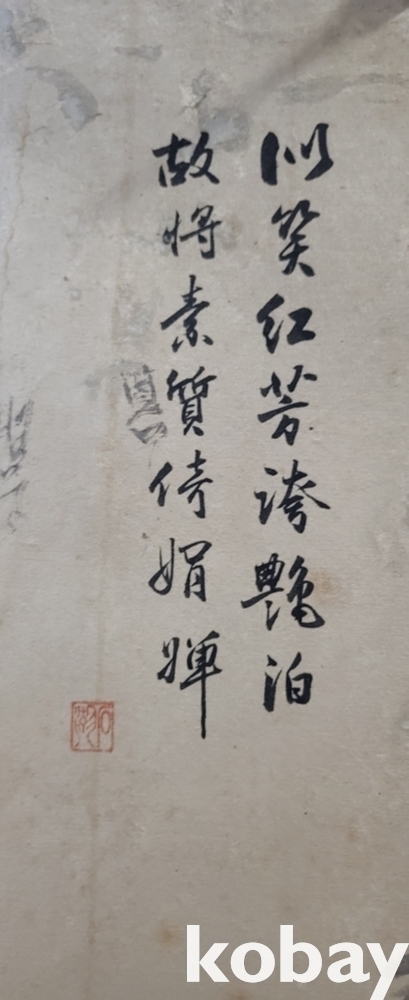 似笑紅芳誇艷泊
故將素質倚娟嬋
kobay